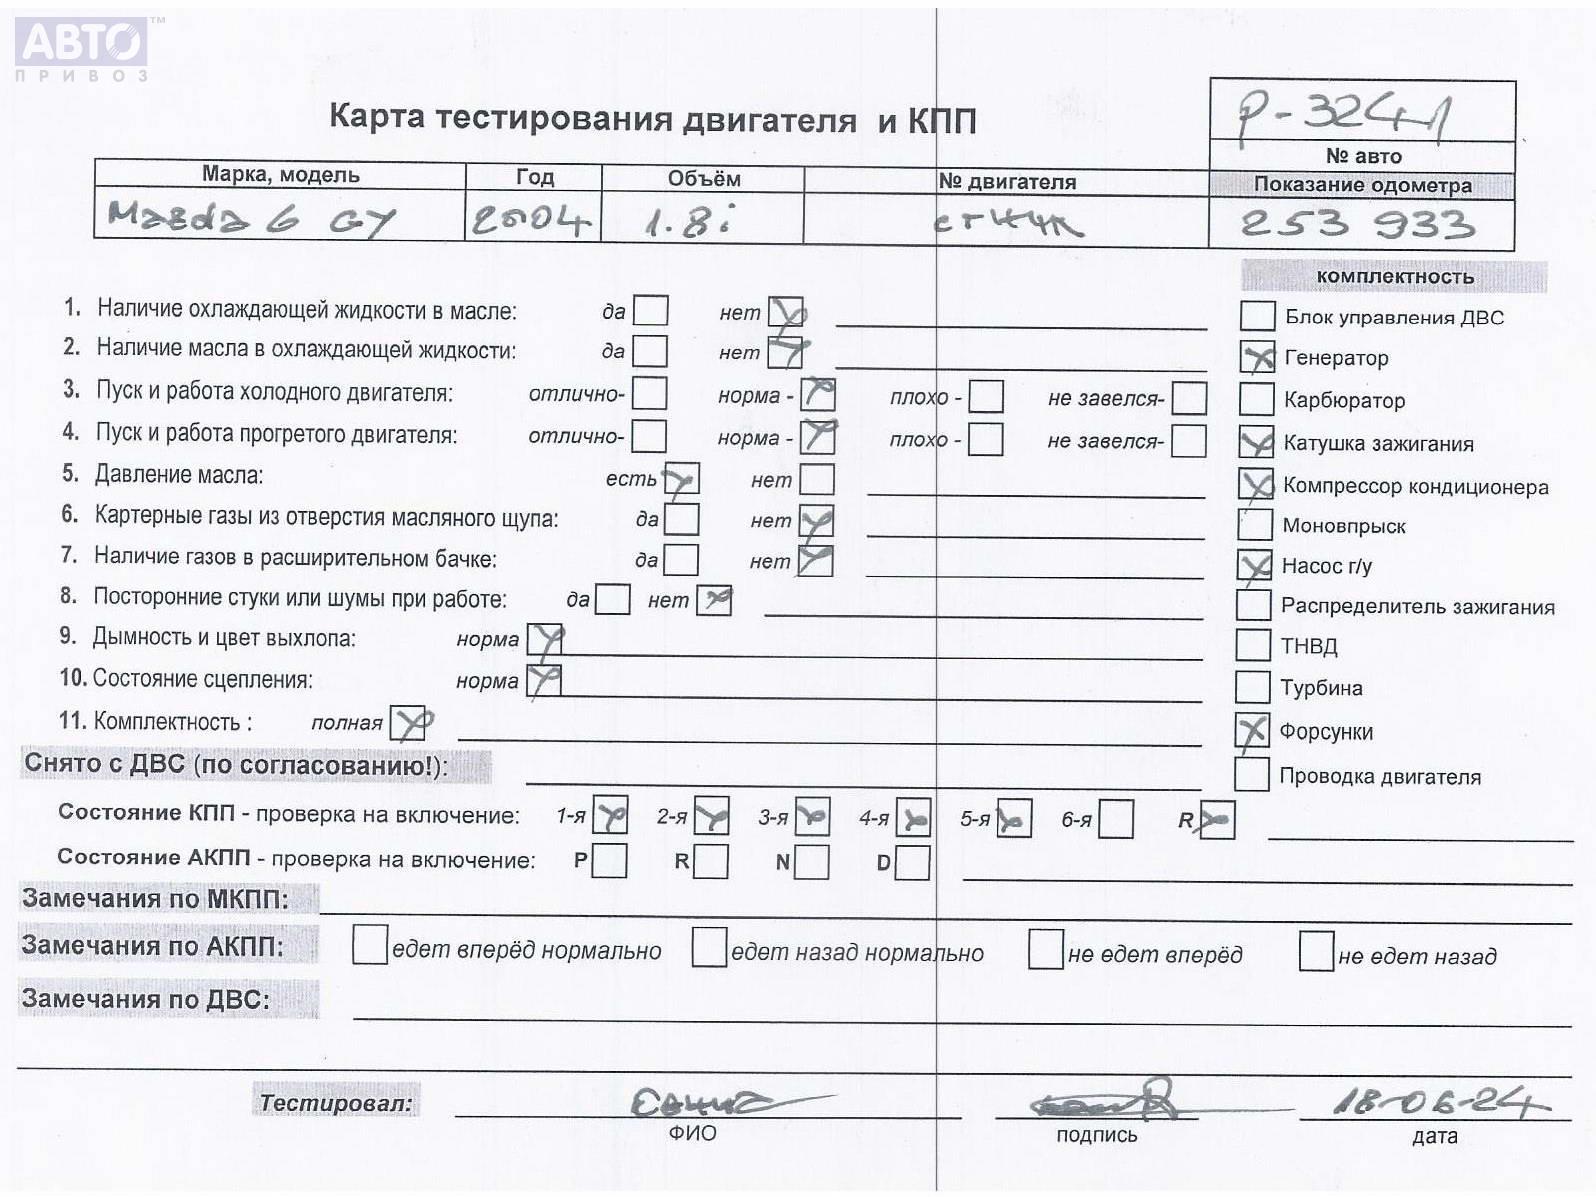 АВТО™
ПРИВОЗ
Карта тестирования двигателя и КПП
P-3241
№ авто
Марка, модель Год Объём № двигателя Показание одометра
Mazda 6 GY 2004 1.8i 253 933
комплектность
1. Наличие охлаждающей жидкости в масле: да нет
Блок управления ДВС
2. Наличие масла в охлаждающей жидкости: да нет
Генератор
3. Пуск и работа холодного двигателя: отлично- норма - плохо - не завелся-
Карбюратор
4. Пуск и работа прогретого двигателя: отлично- норма - плохо - не завелся-
Катушка зажигания
5. Давление масла: есть нет
Компрессор кондиционера
6. Картерные газы из отверстия масляного щупа: да нет
Моновпрыск
7. Наличие газов в расширительном бачке: да нет
Насос г/у
8. Посторонние стуки или шумы при работе: да нет
Распределитель зажигания
9. Дымность и цвет выхлопа: норма
ТНВД
10. Состояние сцепления: норма
Турбина
11. Комплектность : полная
Форсунки
Снято с ДВС (по согласованию!):
Проводка двигателя
Состояние КПП - проверка на включение: 1-я 2-я 3-я 4-я 5-я 6-я R
Состояние АКПП - проверка на включение: P R N D
Замечания по МКПП:
Замечания по АКПП: едет вперёд нормально едет назад нормально не едет вперёд не едет назад
Замечания по ДВС:
Тестировал: 18-06-24
ФИО подпись дата